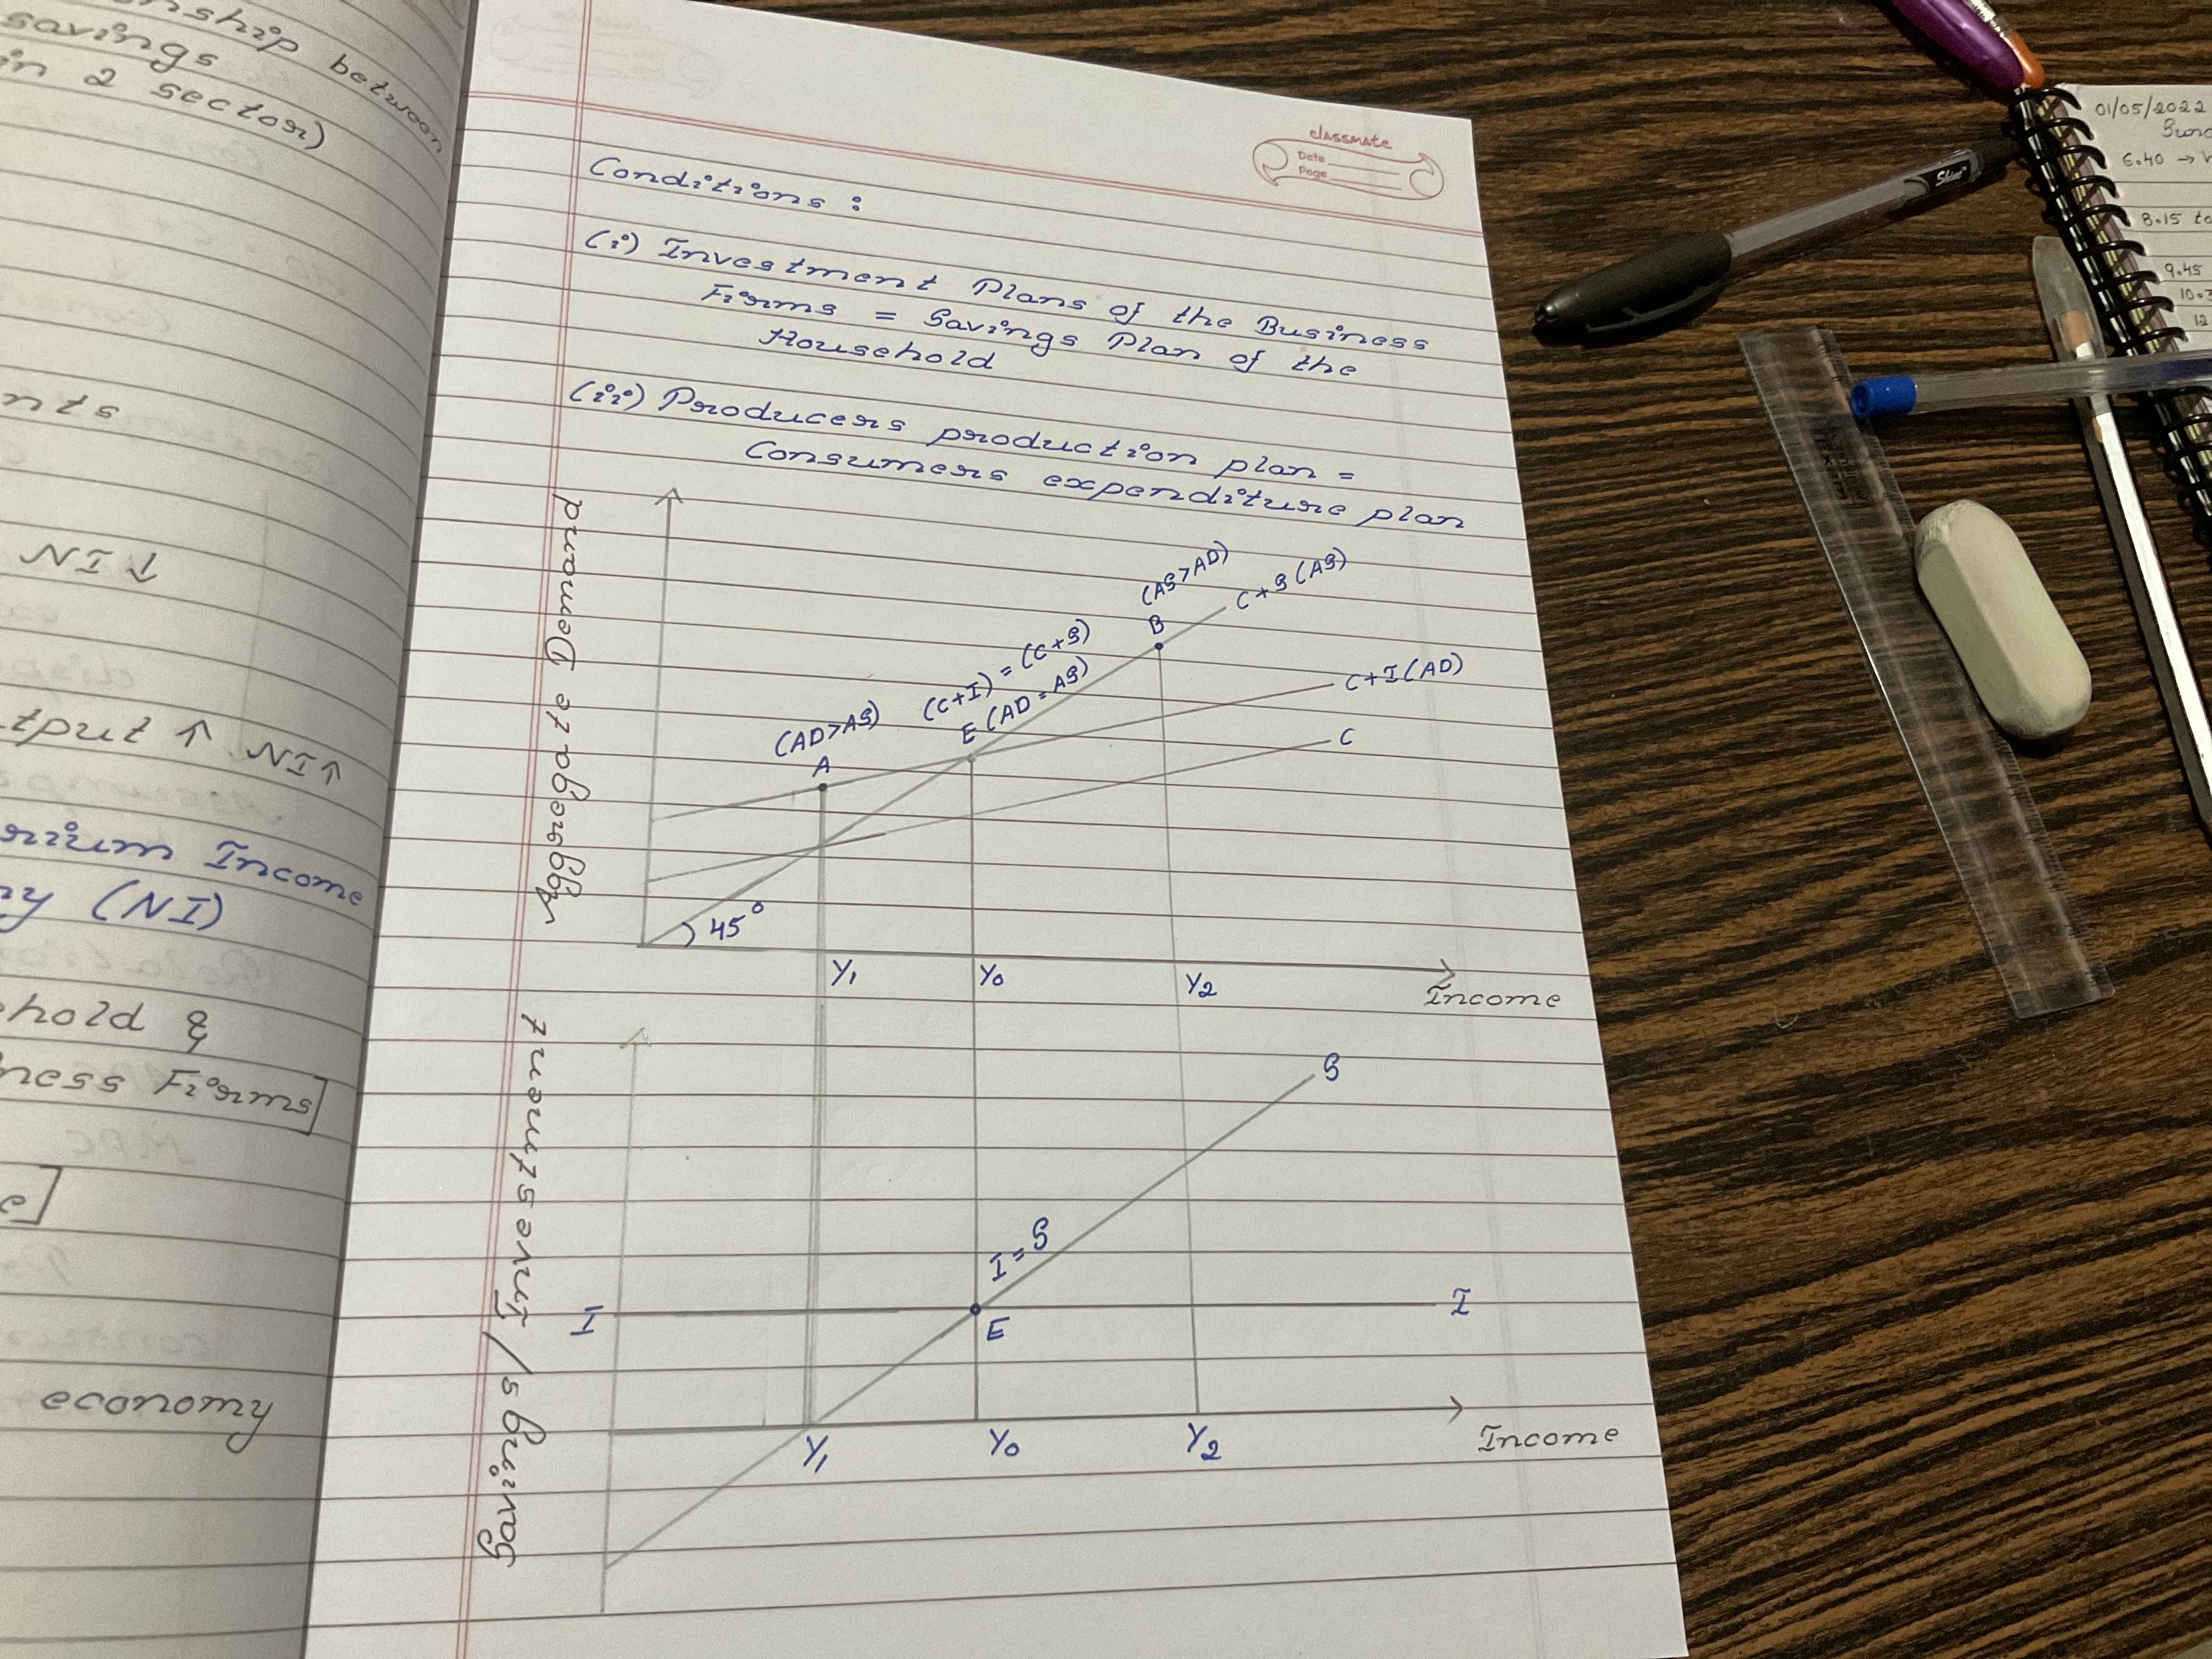 between
savings
in 2 sector)
nts
NI ↓
tput ↑ NI ↑
Income
(NI)
hold &
ness Firms]
e]
economy
classmate
Date
Page
Conditions :
(i) Investment Plans of the Business
Firms = Savings Plan of the
Household
(ii) Producers production plan =
Consumers expenditure plan
Aggregate Demand
(AS>AD)
B
C+S (AS)
(C+I) = (C+S)
E (AD = AS)
C+I (AD)
(AD>AS)
A
C
45°
Y1 Y0 Y2
Income
Saving / Investment
S
I = S
I
E
I
Y1 Y0 Y2
Income
01/05/2022
6.40 →
8.15 to
9.45
10.3
12